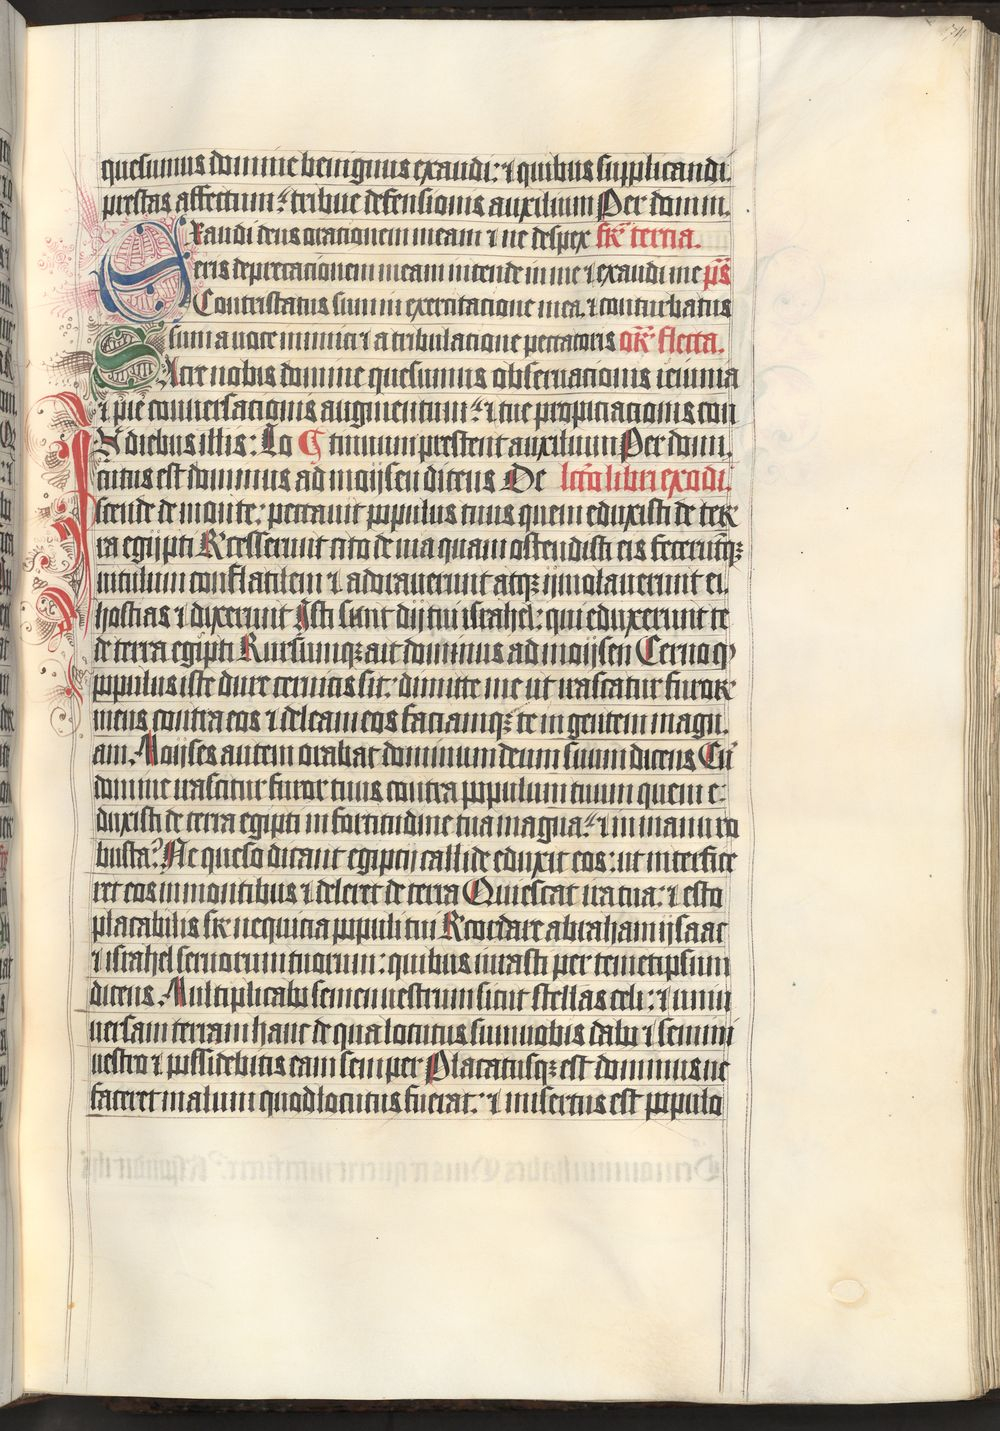 74
quesumus domine benignus exaudi: ⁊ quibus supplicandi
prestas affectum: tribue defensionis auxilium Per domin.
Exaudi deus orationem meam ⁊ ne despex fr̄ tertia.
eris deprecacionem meam intende in me ⁊ exaudi me ps̄
Contristatus sum in exercitacione mea. ⁊ conturbatus
sum a voce inimici ⁊ a tribulacione peccatoris or̄ flecta.
Sacre nobis domine quesumus obseruacionis ieiunia
⁊ pie conuersacionis augmentum: ⁊ tue propiciacionis con
In diebus illis: Lo tinuum prestent auxilium Per dom.
cutus est dominus ad moijsen dicens De lcc̄o libri exodi.
scende de monte: peccauit populus tuus quem eduxisti de ter
ra egijpti Recesserunt cito de uia quam ostendisti eis fecerūtqꝫ
uitulum conflatilem ⁊ adorauerunt atqꝫ ijmolauerunt ei.
hostias ⁊ dixerunt Isti sunt dij tui israhel: qui eduxerunt te
de terra egipti Rursumqꝫ ait dominus ad moijsen Cerno qͻ
populus iste dure ceruicis sit: dimitte me ut irascatur furor
meus contra eos ⁊ deleam eos faciamqꝫ te in gentem magn.
am. Moijses autem orabat dominum deum suum dicens Cū
domine irascitur furor tuus contra populum tuum quem e:
duxisti de terra egipti in fortitudine tua magna: ⁊ in manu ro
busta? Ne queso dicant egiptij callide eduxit eos: ut interfice
ret eos in montibus ⁊ deleret de terra Quiescat ira tua: ⁊ esto
placabilis sr̄ nequicia populi tui Recordare abraham ijsaac
⁊ israhel seruorum tuorum: quibus iurasti per temetipsum
dicens. Multiplicabo semen uestrum sicut stellas celi: ⁊ uniu
uersam terram hanc de qua locutus sum uobis dabo ⁊ semini
uestro ⁊ possidebitis eam semper Placatusqꝫ est dominus ne
faceret malum quod locutus fuerat: ⁊ misertus est populo